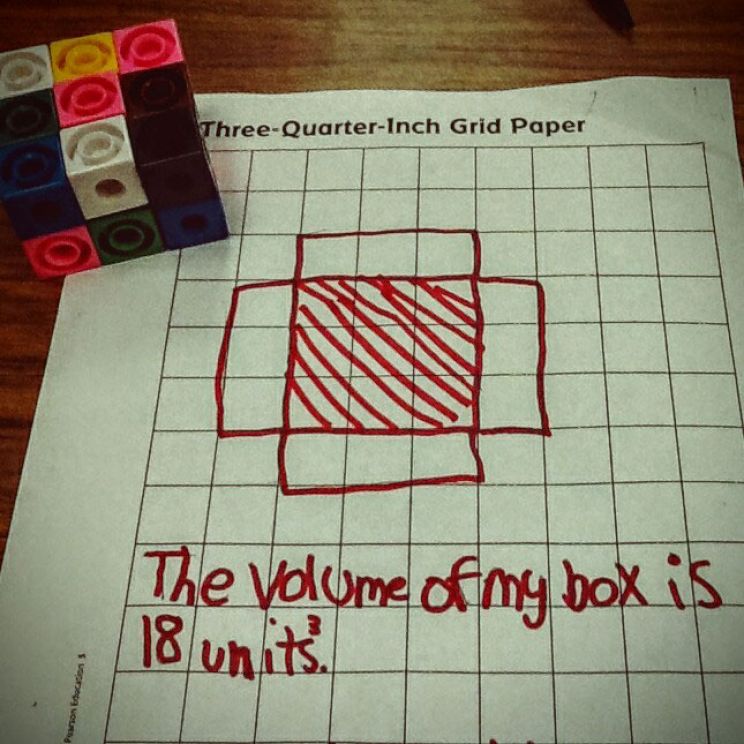 Three-Quarter-Inch Grid Paper
The Volume of my box is
18 units³.
Pearson Education 3